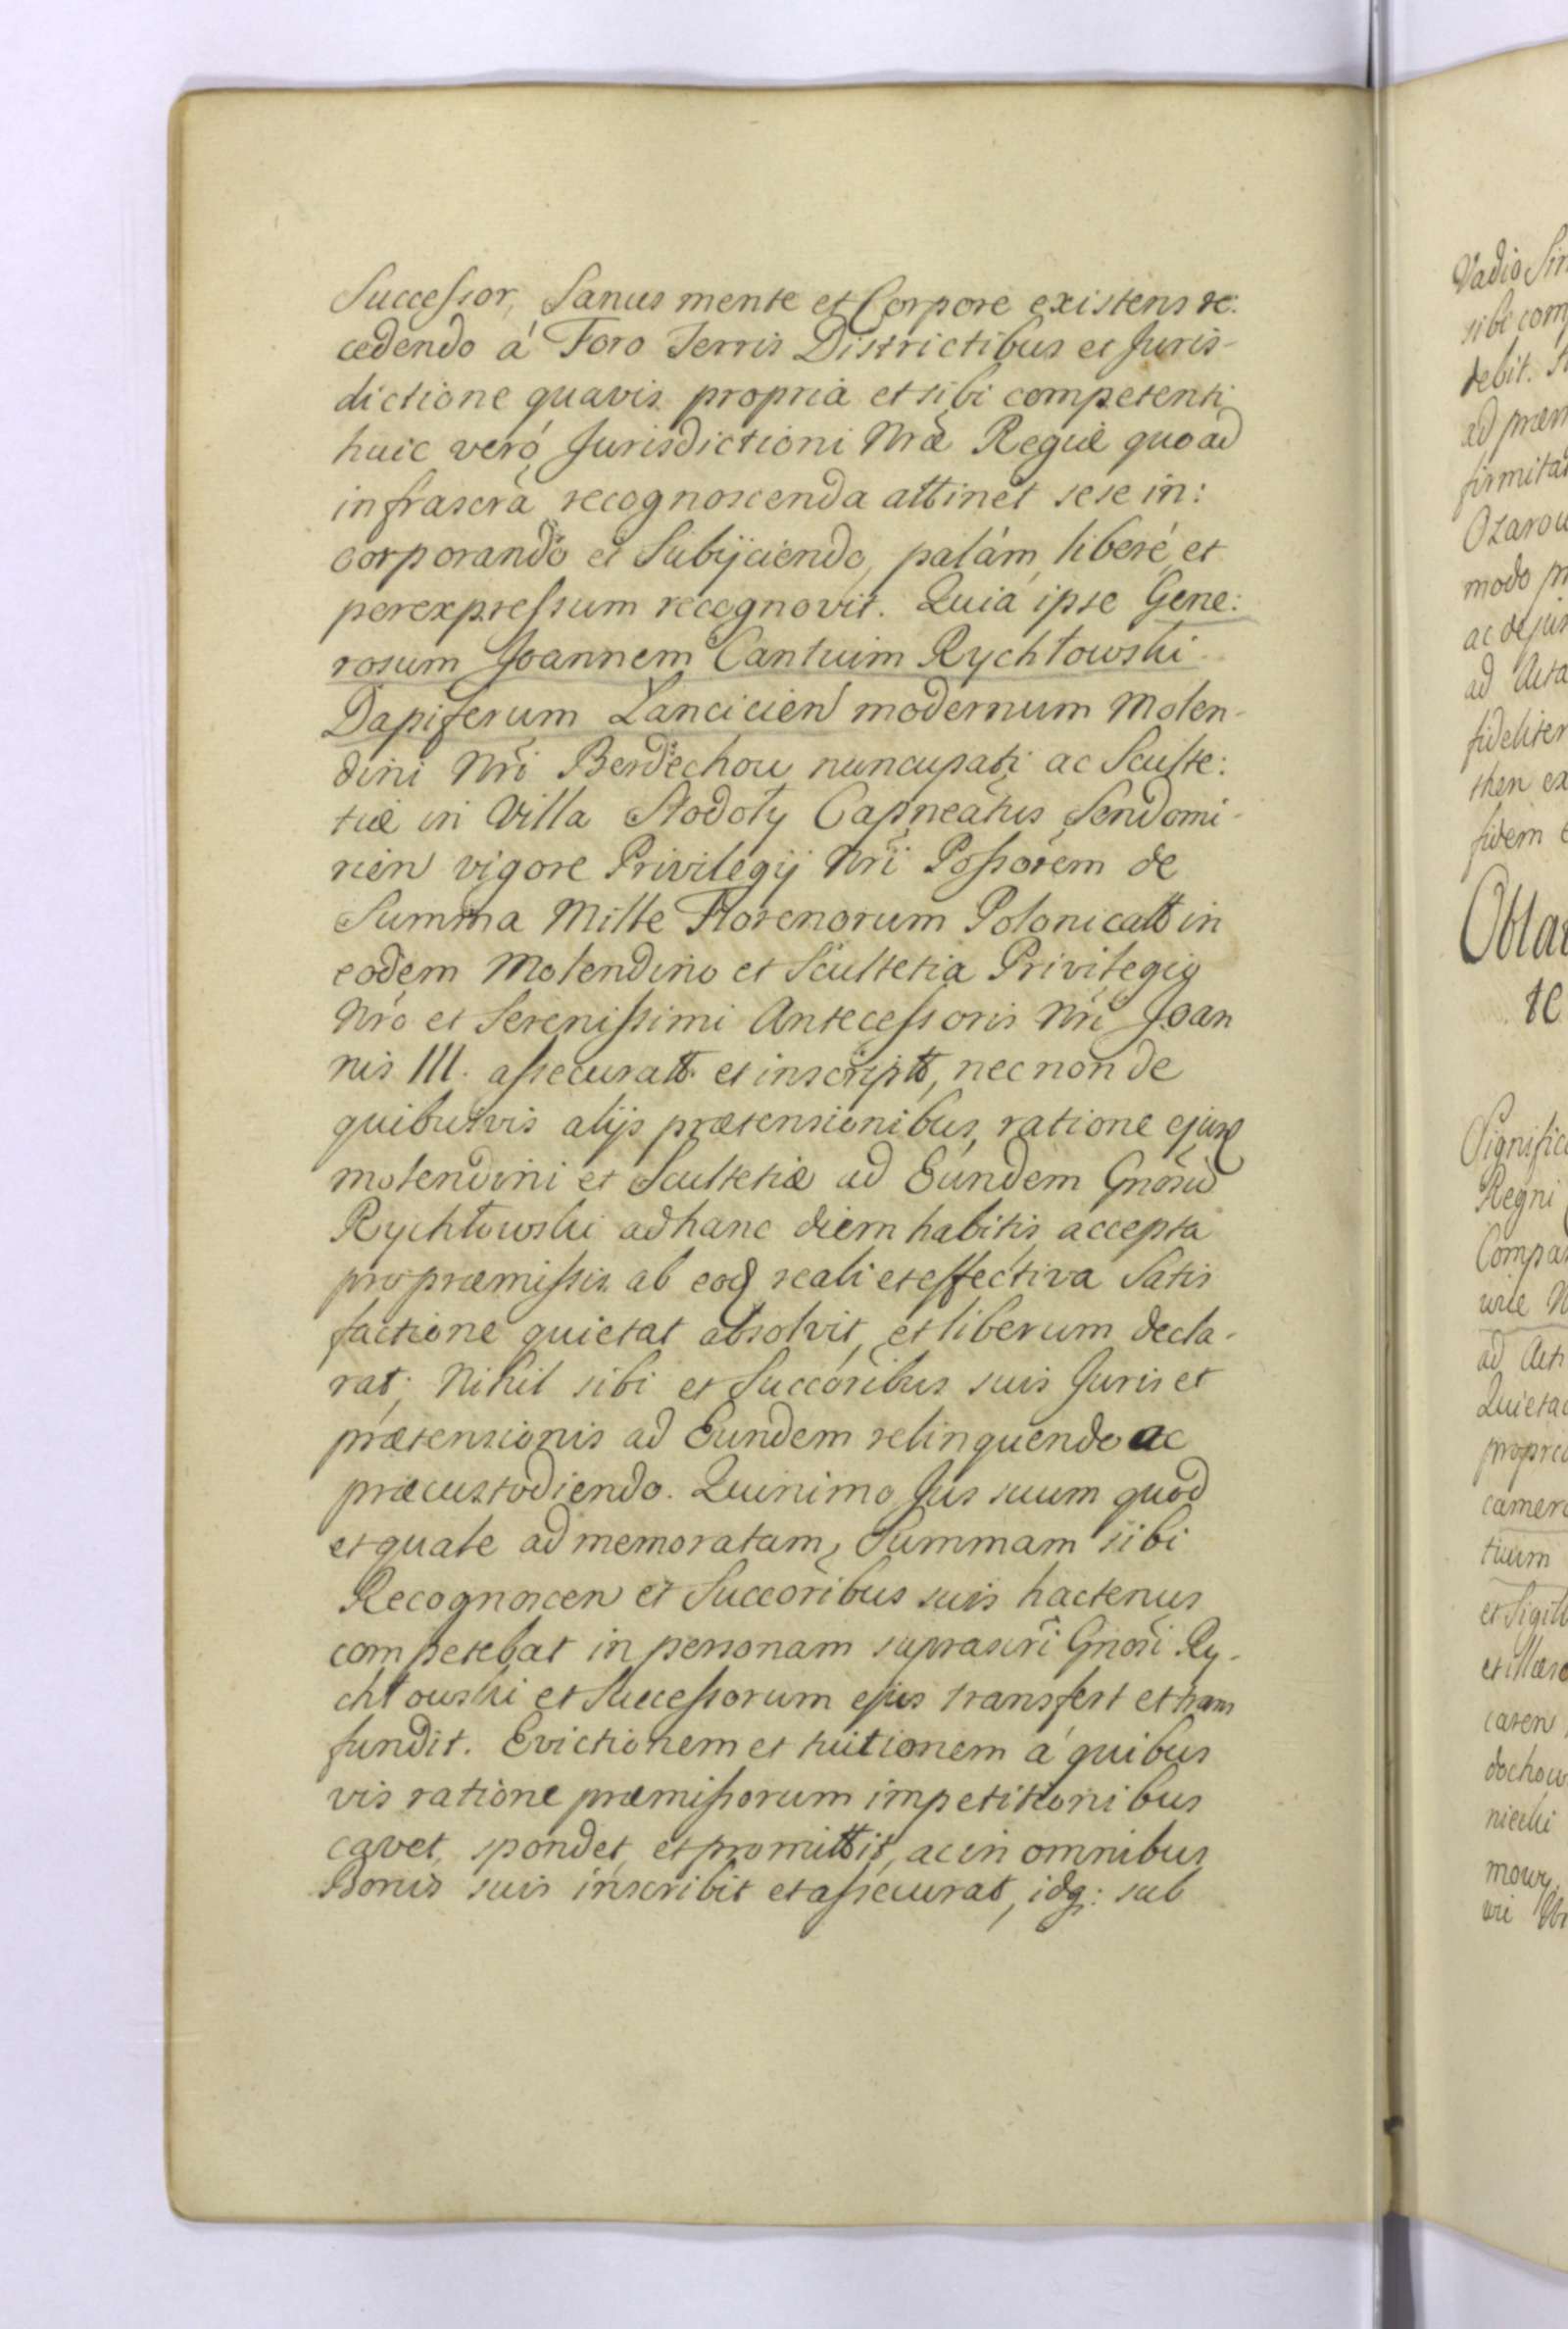 Successor, Sanus mente et Corpore existens re:
cedendo á Foro Terris Districtibus et Juris-
dictione quavis propria et sibi competenti
huic veró Jurisdictioni Nrae Regiae quoad
infrascra recognoscenda attinet sese in:
corporando et Subijciendo, palám, liberé, et
perexpressum recognovit. Quia ipse Gene:
rosum Joannem Cantuim Rychłowski
Dapiferum Lancicien modernum Molen-
dini Nri Berdechow nuncupati ac Sculte:
tiae in Villa Stodoły Capneatus Sendomi-
rien vigore Privilegij Nri Possorem de
Summa Mille Florenorum Polonicatt in
eodem Molendino et Scultetia Privilegig
Nro et Serenissimi Antecessoris Nri Joan
nis III. assecuratt et inscriptt, necnon de
quibusvis alijs praetensionibus, ratione ejusd
molendini et Scultetiae ad Eundem Gnosud
Rychłowski adhanc diem habitis accepta
pro praemissis ab eod reali et effectiva Satis
factione quietat absolvit, et liberum decla-
rat; Nihil sibi et Succoribus suis Juris et
praetensionis ad Eundem relinquendo ac
praecustodiendo. Quinimo Jus suum quod
et quale ad memoratam, Summam sibi
Recognoscen et Succoribus suis hactenus
competebat in personam suprascri Gnosi Ry-
chłowski et Successorum ejus transfert et trans
fundit. Evictionem et tuitionem á quibus
vis ratione praemissorum impetitionibus
cavet, spondet, et promittit, ac in omnibus
Bonis suis inscribit et assecurat, idq: sub
Vadio
sibi com
debit.
ad praem
firmita
Ozarow
modo
ac
ad Acta
fideliter
then ex
fidem
Oblat
te
Signific
Regni
Compa

ad Act
Quieta
propri
camer
tuum
et Sigill
et illaes
caren
dochow
niecki
mowy